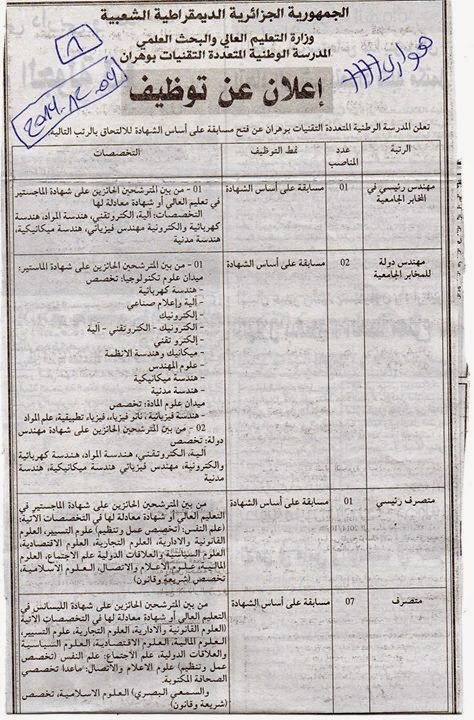 الجمهورية الجزائرية الديمقراطية الشعبية
وزارة التعليم العالي والبحث العلمي
المدرسة الوطنية المتعددة التقنيات بوهران
إعلان عن توظيف
هواري
تعلن المدرسة الوطنية المتعددة التقنيات بوهران عن فتح مسابقة على أساس الشهادة للالتحاق بالرتب التالية:
الرتبة
عدد المناصب
نمط التوظيف
التخصصات
مهندس رئيسي في
المخابر الجامعية
01
مسابقة على أساس الشهادة
01 - من بين المترشحين الحائزين على شهادة الماجستير
في تعليم العالي أو شهادة معادلة لها
التخصصات: آلية، الكتروتقني، هندسة المواد، هندسة
كهربائية والكترونية مهندس فيزيائي، هندسة ميكانيكية،
هندسة مدنية
مهندس دولة
للمخابر الجامعية
02
مسابقة على أساس الشهادة
01 - من بين المترشحين الحائزين على شهادة الماستير:
ميدان علوم تكنولوجيا: تخصص
- هندسة كهربائية
- آلية وإعلام صناعي
- إلكترونيك
- الكترونيك - الكتروتقني - آلية
- الكتروتقني
- ميكانيك وهندسة الانظمة
- علوم المهندس
- هندسة ميكانيكية
- هندسة مدنية
ميدان علوم المادة: تخصص
- هندسة فيزيائية: نانو فيزياء، فيزياء تطبيقية، علم المواد
02 - من بين المترشحين الحائزين على شهادة مهندس
دولة: تخصص
آلية، الكتروتقني، هندسة المواد، هندسة كهربائية
والكترونية، مهندس فيزيائي هندسة ميكانيكية، هندسة
مدنية
متصرف رئيسي
01
مسابقة على أساس الشهادة
من بين المترشحين الحائزين على شهادة الماجستير في
التعليم العالي أو شهادة معادلة لها في التخصصات الآتية:
(علم النفس: تخصص عمل وتنظيم) علوم التسيير، العلوم
القانونية والادارية، العلوم التجارية، العلوم الاقتصادية،
العلوم السياسية والعلاقات الدولية علم الاجتماع، العلوم
المالية، علوم الاعلام والاتصال، العلوم الاسلامية،
تخصص (شريعة وقانون)
متصرف
07
مسابقة على أساس الشهادة
من بين المترشحين الحائزين على شهادة الليسانس في
التعليم العالي أو شهادة معادلة لها في التخصصات الآتية
(العلوم القانونية والادارية، العلوم التجارية، علوم التسيير،
العلوم المالية، العلوم الاقتصادية، العلوم السياسية
والعلاقات الدولية، علم الاجتماع: علم النفس (تخصص
عمل وتنظيم) علوم الاعلام والاتصال: ماعدا تخصصي
الصحافة المكتوبة.
والسمعي البصري) العلوم الاسلامية، تخصص
(شريعة وقانون)